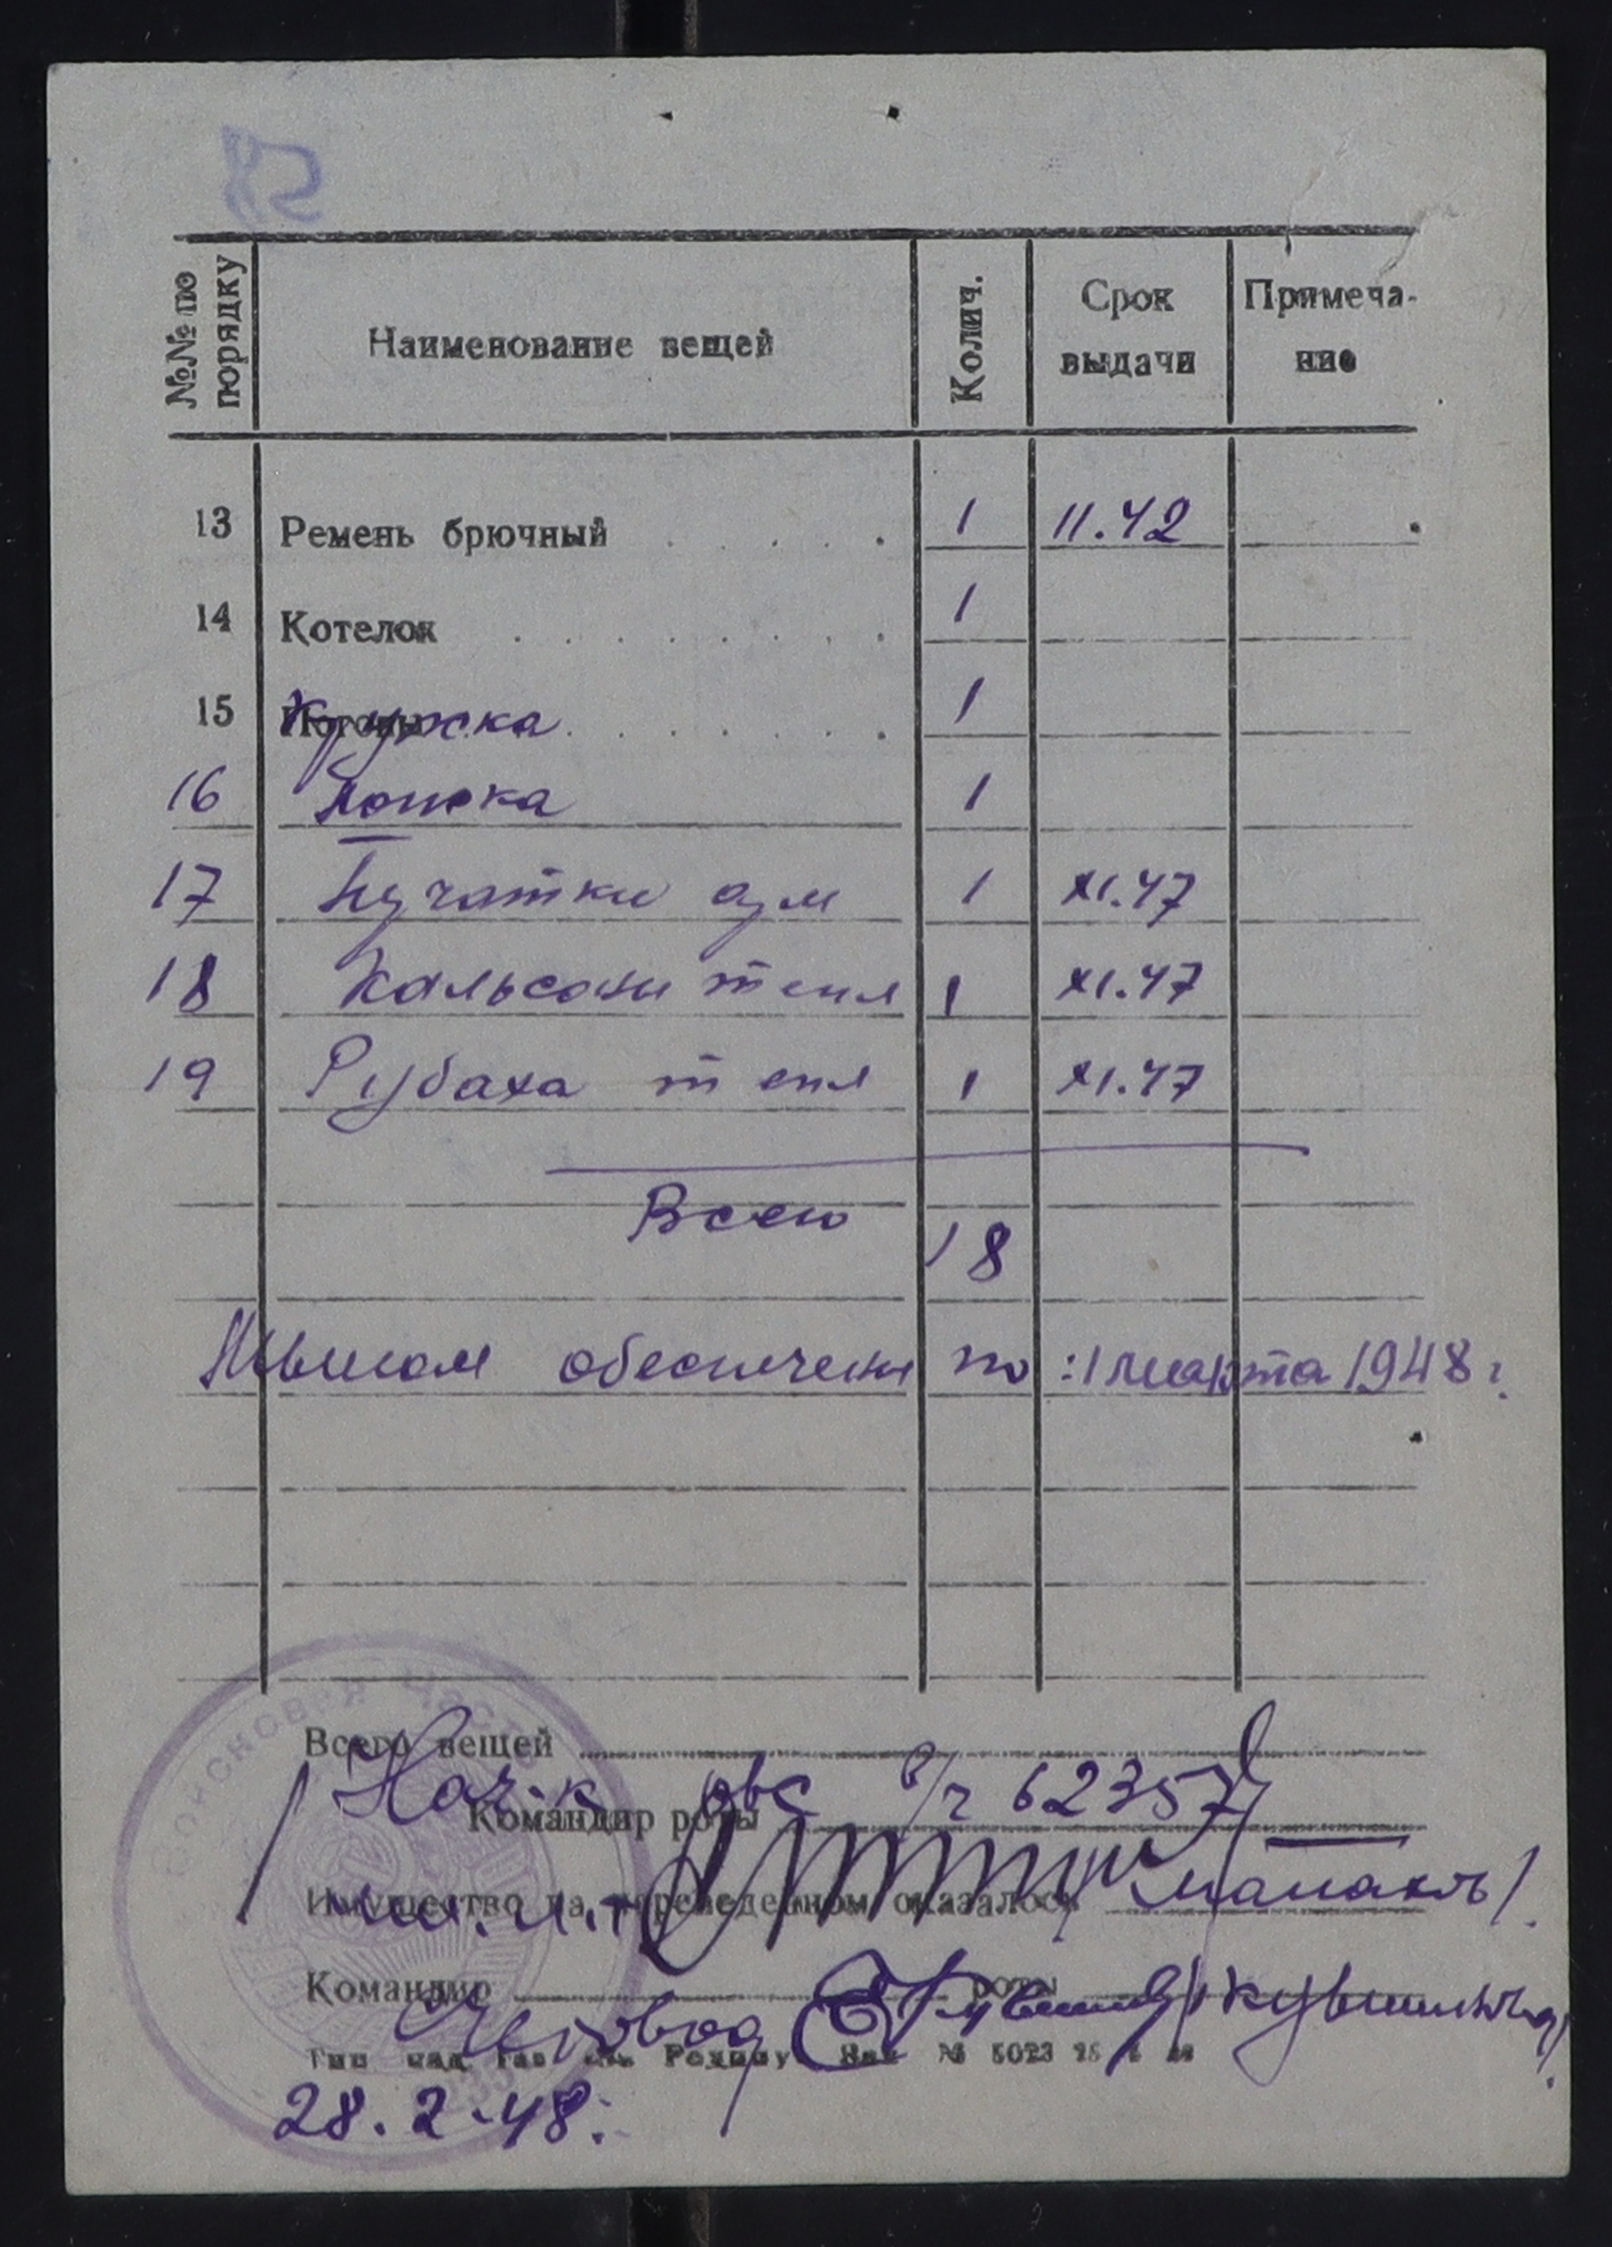 №№ по порядку
Наименование вещей
Колич.
Срок выдачи
Примеча-
ние
13 Ремень брючный . . . . . 1 11.42
14 Котелок . . . . . . . . 1
15 Кружка . . . . . . . 1
16 Ложка 1
17 Перчатки 1 XI.47
18 Кальсоны тепл 1 XI.47
19 Рубаха тепл 1 XI.47
Всего
18
Мылом обеспечен по :1 марта 1948 г.
Всего вещей
Нач-к ОВС в/ч 62357
Командир роты
Имущество на переведенном оказалось
Командир роты
№ 5023
28.2.48.